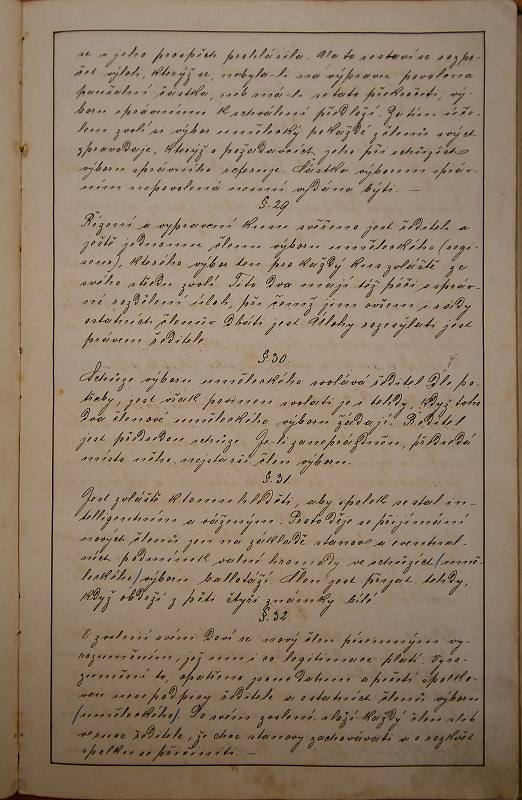 se v jeho prospěch prohlásila. Na to sestaví se rozpo-
čet výloh, kterýž se, nebyla-li na výpravu povolena
paušální částka, neb má-li se tato překročiti, vý-
boru správnímu k schválení předloží. Za tím úče-
lem zvolí si výbor umělecký pokaždé z členů svých
zpravodaje, který o požadavcích jeho při schůzích
výboru správního referuje. Částka výborem správ-
ním nepovolená nesmí vydána býti. —
§. 29
Řízení a vypravení kusu svěřeno jest řediteli a
ještě jednomu členu výboru uměleckého (regi-
seur), kterého výbor ten pro každý kus zvláště ze
svého středu zvolí. Tito dva mají též péči o správ-
né rozdělení úloh, při čemž jim ovšem i rady
ostatních členův dbáti jest. Úlohy rozesýlati jest
právem ředitele.
§. 30.
Schůze výboru uměleckého svolává ředitel dle po-
třeby, jest však povinen svolati je i tehdy, když toho
dva členové uměleckého výboru žádají. Ředitel
jest předsedou schůze. Je-li zaneprázdněn, předsedá
místo něho nejstarší člen výboru.
§. 31
Jest zvláště k tomu hleděti, aby spolek se stal in-
telligentním a váženým. Proto děje se přijímání
nových členů jen na základě stanov a eventuel-
ních podmínek valné hromady ve schůzích (umě-
leckého) výboru ballotáží. Člen jest přijat tehdy,
když obdrží z pěti čtyři známky bílé
§. 32
O zvolení svém doví se nový člen písemným vy-
rozuměním, jež mu i co legitimace platí. Vyro-
zumění to, opatřeno jsouc datem a pečetí spolko-
vou nese podpisy ředitele a ostatních členů výboru
(uměleckého). Po svém zvolení složí každý člen slib
v ruce ředitele, že chce stanovy zachovávati a o rozkvět
spolku se přičiniti. —